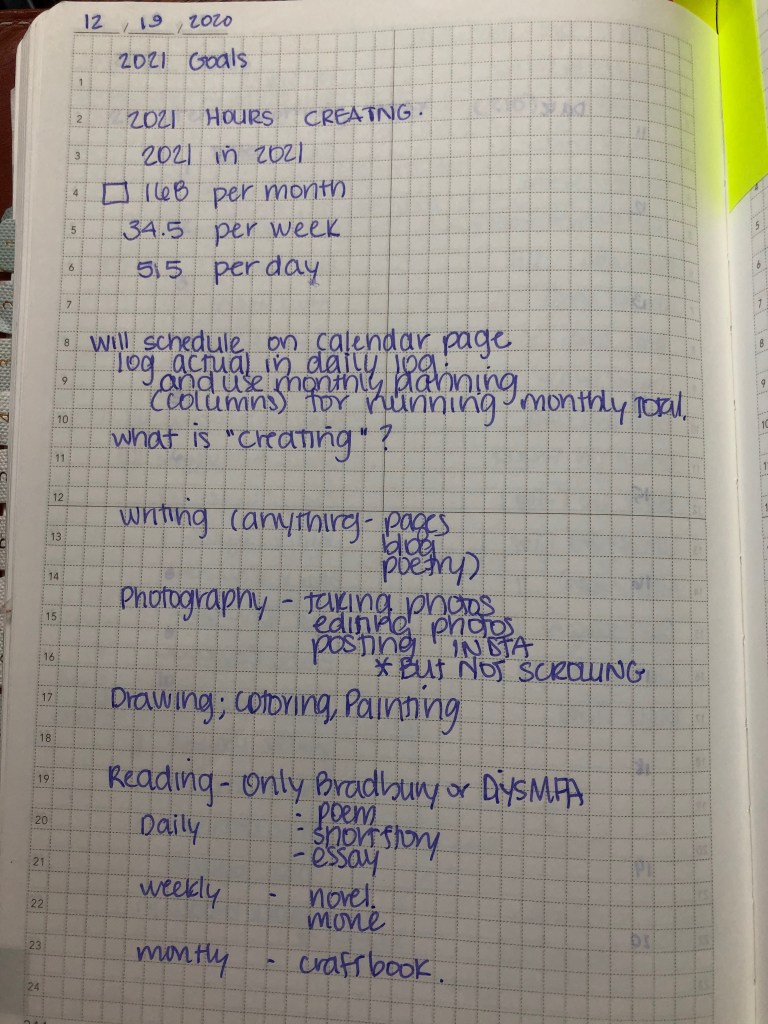 12, 19, 2020
2021 Goals
2021 HOURS CREATNG.
2021 in 2021
168 per month
34.5 per week
5.5 per day
will schedule on calendar page
log actual in daily log.
and use monthly planning
(columns) for running monthly total.
what is "creating"?
writing (anything - pages
blog
poetry)
Photography - taking photos
editing photos
posting INSTA
* BUT NOT SCROLLING
Drawing; Coloring, Painting
Reading - Only Bradbury or DIYSMFA
Daily - poem
- short story
- essay
weekly - novel.
movie
montly - craft book.
1
2
3
4
5
6
7
8
9
10
11
12
13
14
15
16
17
18
19
20
21
22
23
24